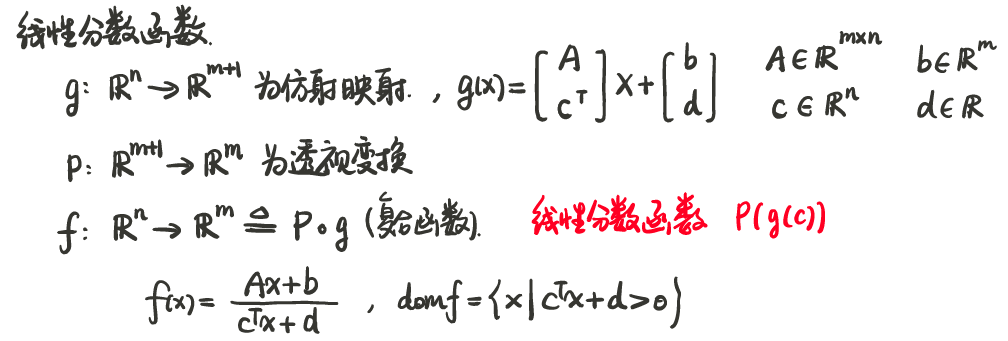 线性分数函数.
g: ℝⁿ → ℝᵐ⁺¹ 为仿射映射. , g(x)=[A cᵀ]x+[b d] A∈ℝᵐˣⁿ b∈ℝᵐ c∈ℝⁿ d∈ℝ
P: ℝᵐ⁺¹ → ℝᵐ 为透视变换
f: ℝⁿ → ℝᵐ ≜ P∘g (复合函数). 线性分数函数 P(g(c))
f(x)= (Ax+b)/(cᵀx+d) , domf={x|cᵀx+d>0}